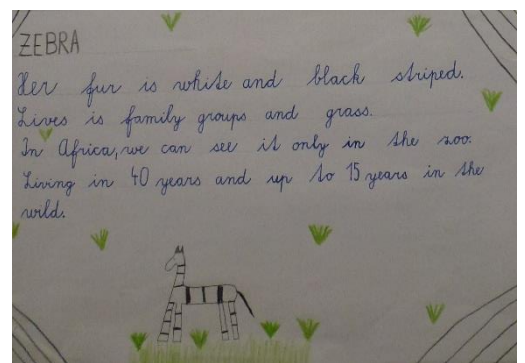 ZEBRA
Her fur is white and black striped.
Lives is family groups and grass.
In Africa, we can see it only in the zoo.
Living in 40 years and up to 15 years in the
wild.